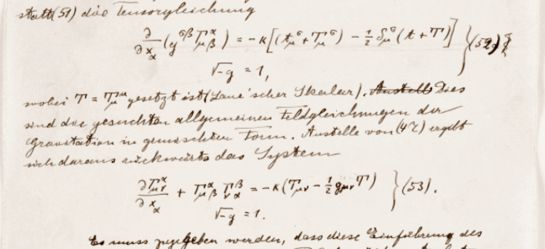 statt (51) die Tensorgleichung
∂/∂x_α (g^{σβ} Γ^α_{μβ}) = −κ[(t^σ_μ + T^σ_μ) − ½ δ^σ_μ (t + T)] } (52)
√−g = 1,
wobei T = T^μ_μ gesetzt ist (Laue'scher Skalar). Dies
sind die gesuchten allgemeinen Feldgleichungen der
Gravitation in gemischter Form. Anstelle von (47) ergibt
sich daraus rückwärts das System
∂Γ^α_{μν}/∂x_α + Γ^α_{μβ} Γ^β_{να} = −κ(T_{μν} − ½ g_{μν} T) } (53).
√−g = 1.
Es muss zugegeben werden, dass diese Einführung des